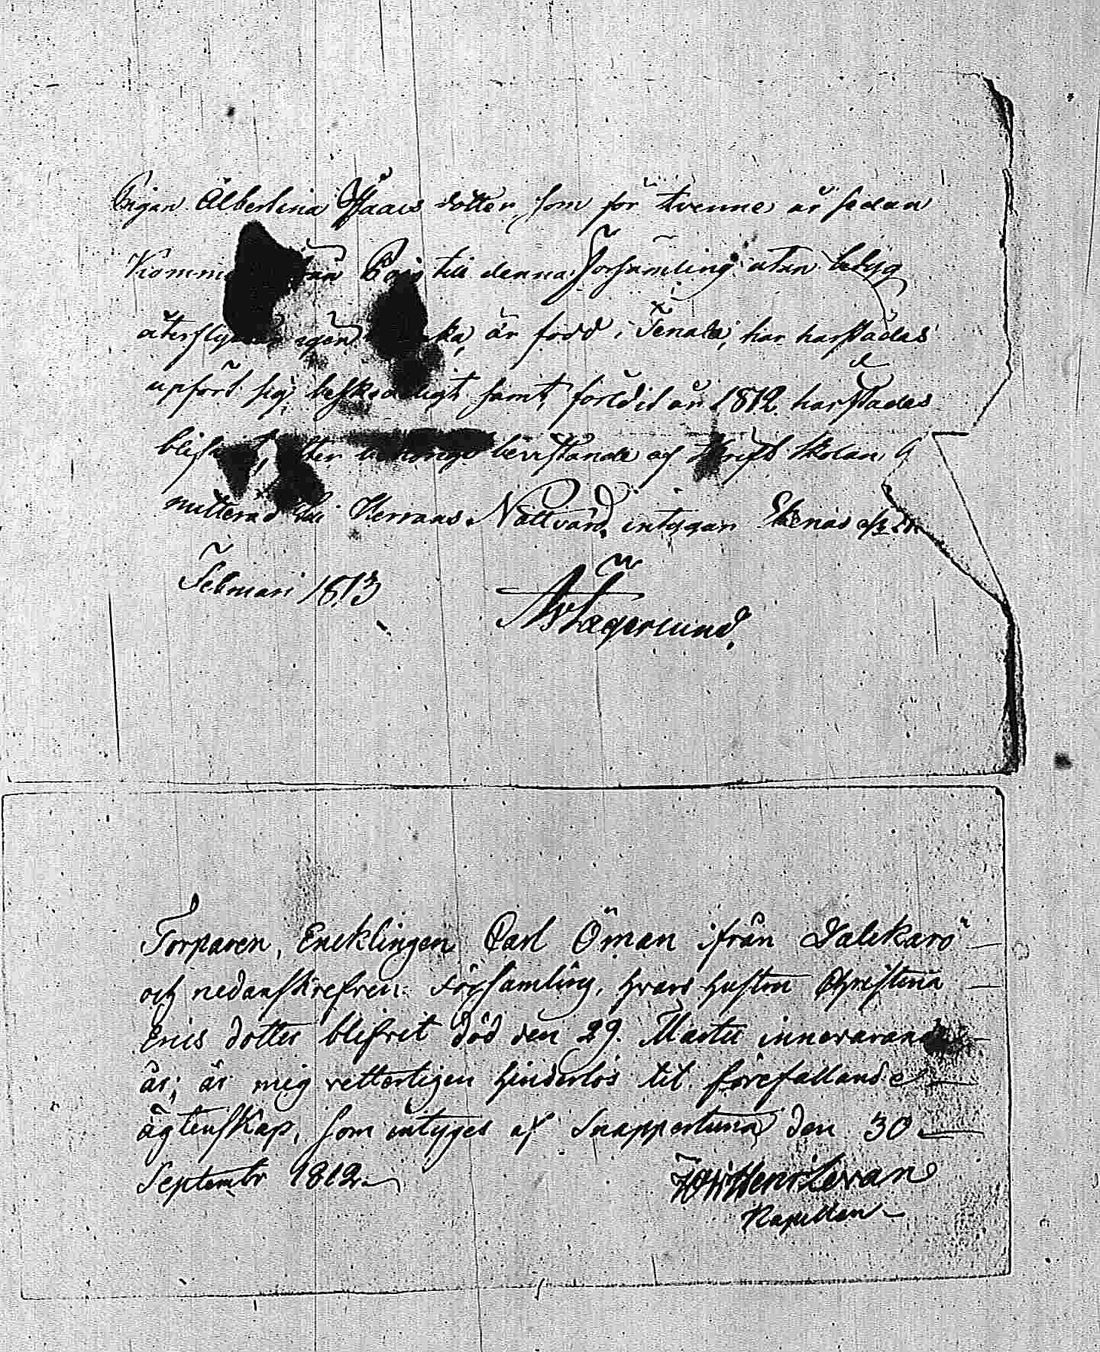 Pigan Albertina Isaacs dotter, som för tvenne år sedan
Kommit från Pojo till denna Församling utan betyg
återflyttar igen är född i Tenala, har härstädes
upfört sig beskedeligt samt förledit år 1812 härstädes
blifvit, efter behörigt bevistande af Skrift Skolan, ad
mitterad till Herrans Nattvard, intygar Ekenäs
Februari 1813 Lägerlund
Torparen, Encklingen Carl Öman ifrån Dalckarö
och nedanskrefven Församling, hvars hustru Christina
Erics dotter blifvit död den 29. Martii innevarande
år; är mig vetterligen hinderlös til förefallande
ägtenskap, som intyges af Snappertuna den 30
Septembr 1812